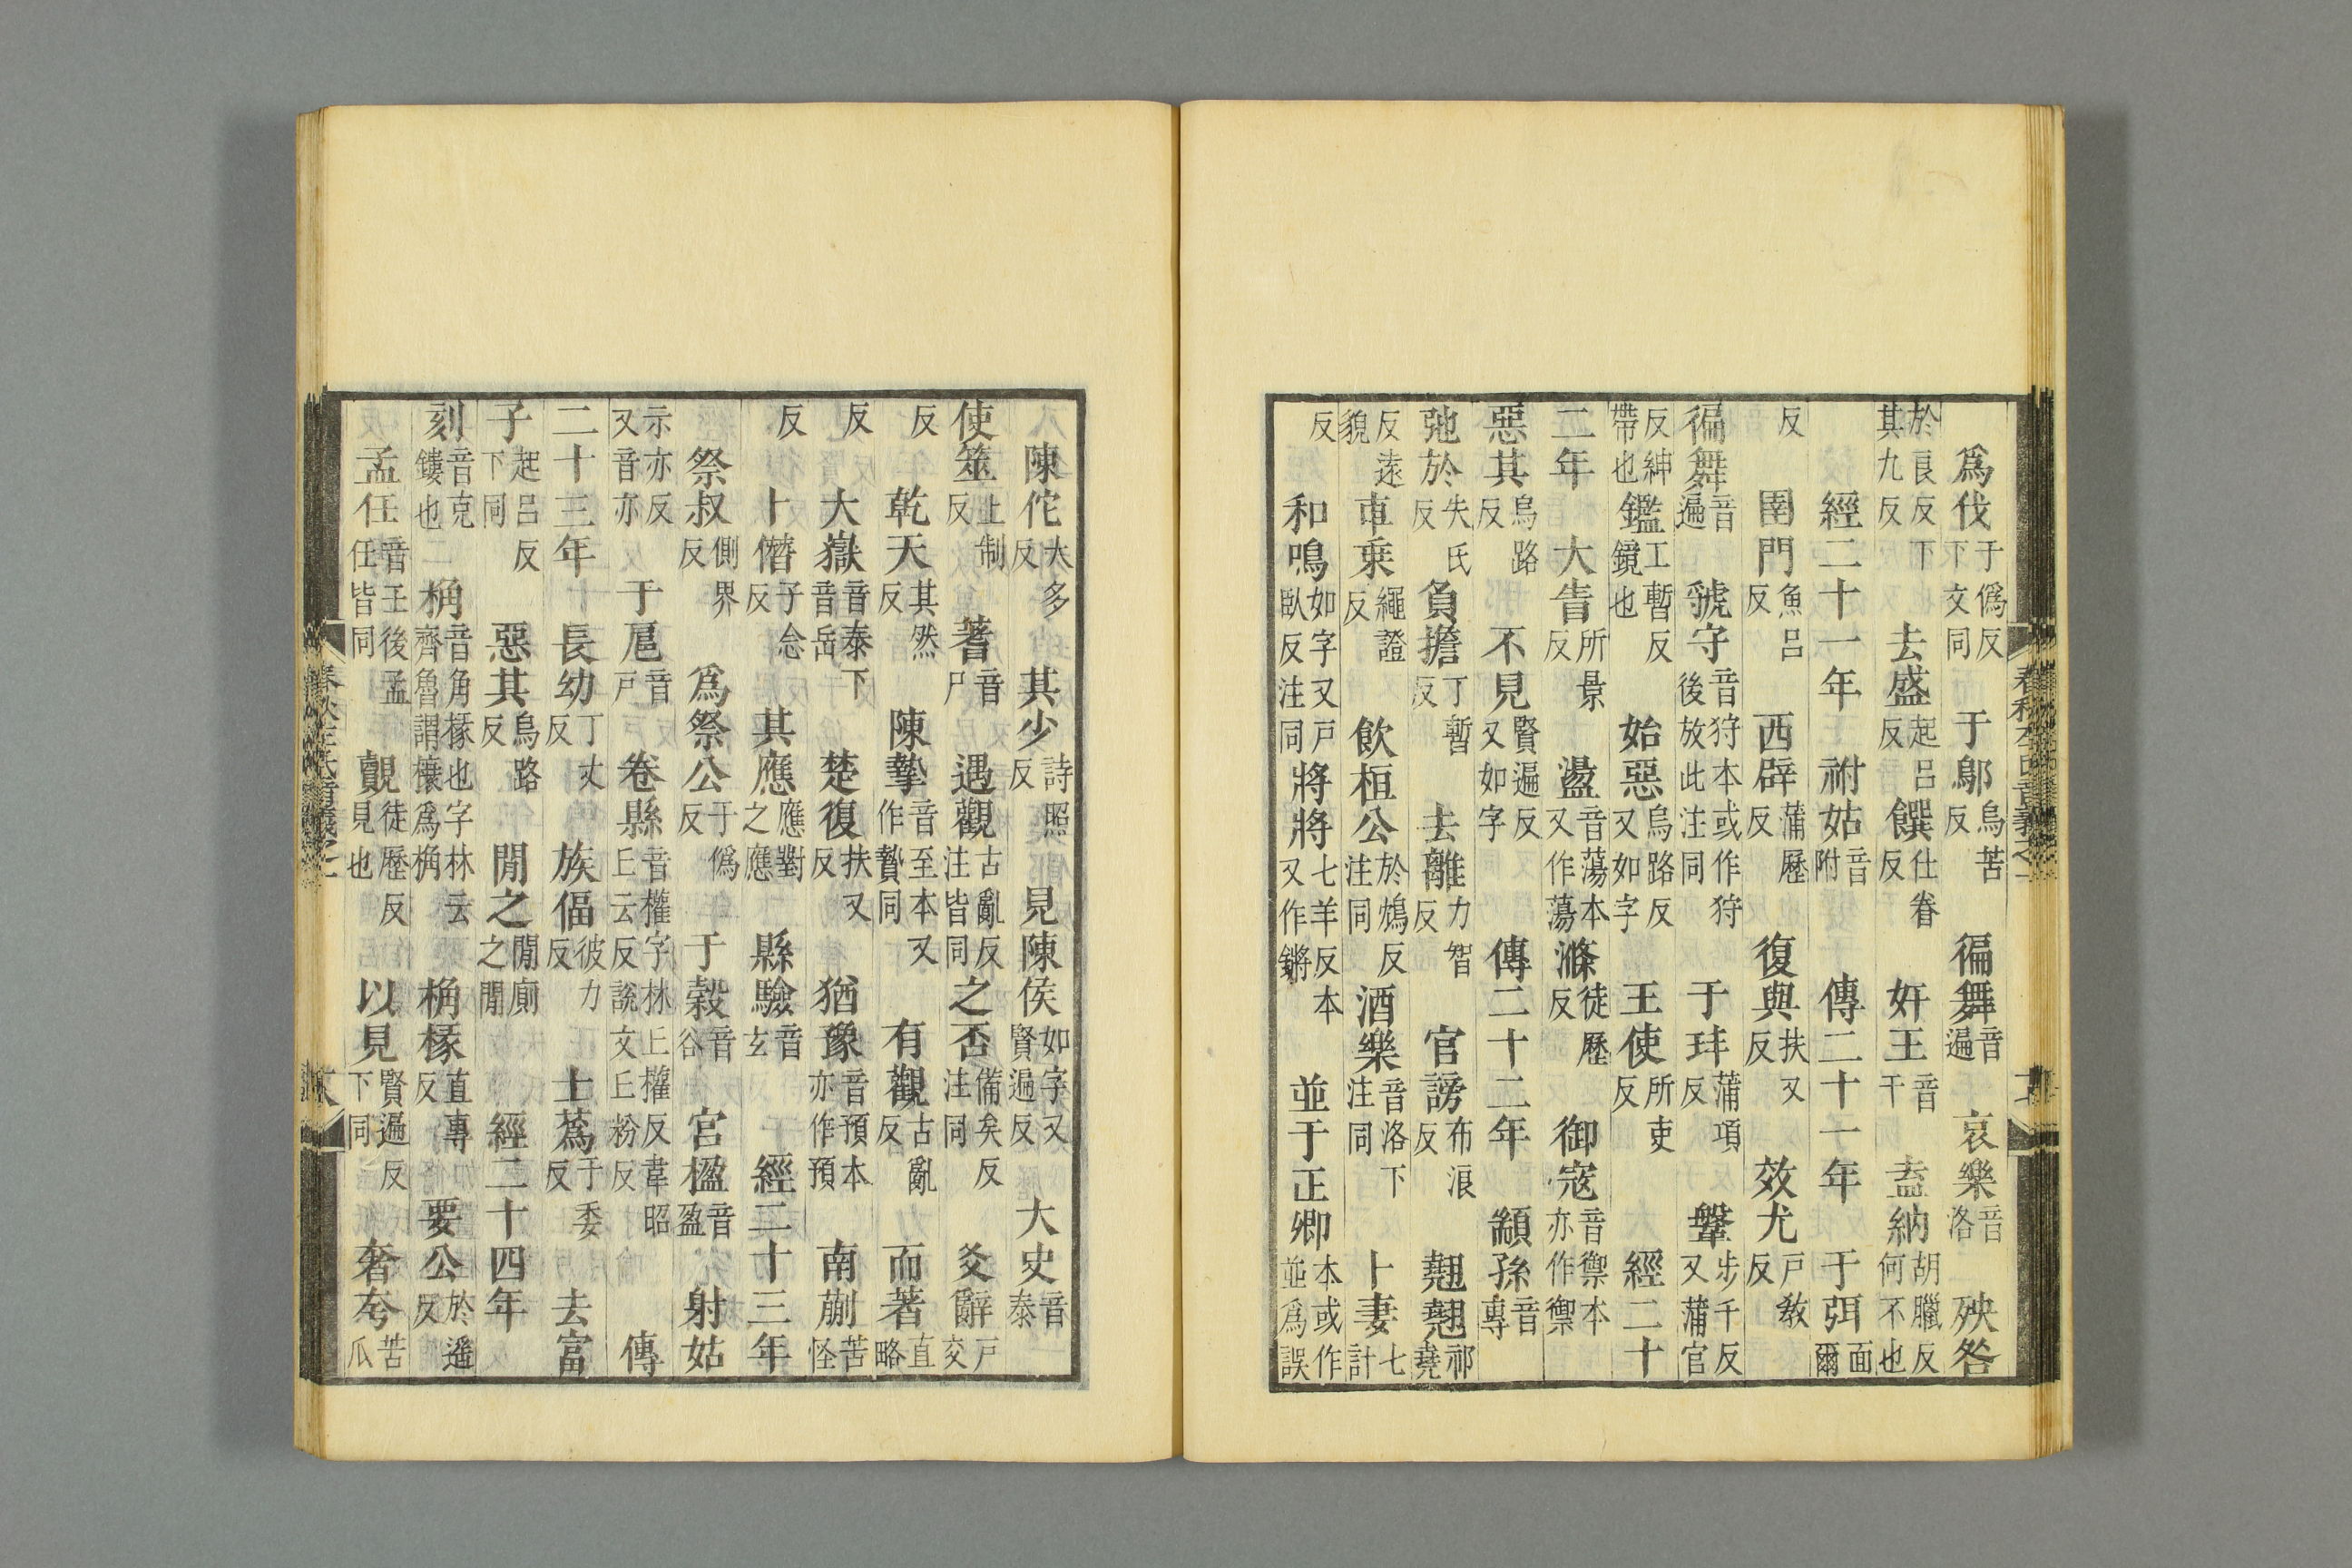 爲伐于僞反下文同于鄔烏苦反徧舞音遍哀樂音洛殃咎
於良反下其九反去盛起呂反饌仕眷反奸王音干盍納胡臘反何不也
經二十一年祔姑音附傳二十一年于弭面爾
反圉門魚呂反西辟蒲歷反復與扶又反效尤戶敎反
徧舞音遍虢守音狩本或作狩後放此注同于玤蒲項反鞶步千反又蒲官
反紳帶也鑑工暫反鏡也始惡烏路反又如字王使所吏反經二十
二年大眚所景反盪音蕩本又作蕩滌徒歷反御寇音禦本亦作禦
惡其烏路反不見賢遍反又如字傳二十二年顓孫音專
弛於失氏反負擔丁暫反去離力智反官謗布浪反翹翹祁堯
反遠貌車乗繩證反飲桓公於鴆反注同酒樂音洛下注同卜妻七計
反和鳴如字又戶臥反注同將將七羊反本又作鏘並于正卿本或作並爲誤
春秋左氏音義之一
陳佗大多反其少詩照反見陳侯如字又賢遍反大史音泰
使筮上制反蓍音尸遇觀古亂反注皆同之否備矣反注同爻辭戶交
反乾天其然反陳摯音至本又作贄同有觀古亂反而著直略
反大嶽音泰下音岳楚復扶又反猶豫音預本亦作預南蒯苦怪
反卜僭子念反其應應對之應縣驗音玄經二十三年
祭叔側界反爲祭公于僞反于穀音谷宮楹音盈射姑
示亦反又音亦于扈音戶卷縣音權字林丘權反韋昭丘云反說文丘粉反傳
二十三年長幼丁丈反族偪彼力反士蔿于委反去富
子起呂反下同惡其烏路反閒之閒廁之閒經二十四年
刻音克鏤也桷音角椽也字林云齊魯謂榱爲桷桷椽直專反要公於遥反
孟任音壬後孟任皆同覿徒歷反見也以見賢遍反下同奢夸苦瓜
春秋左氏音義之一